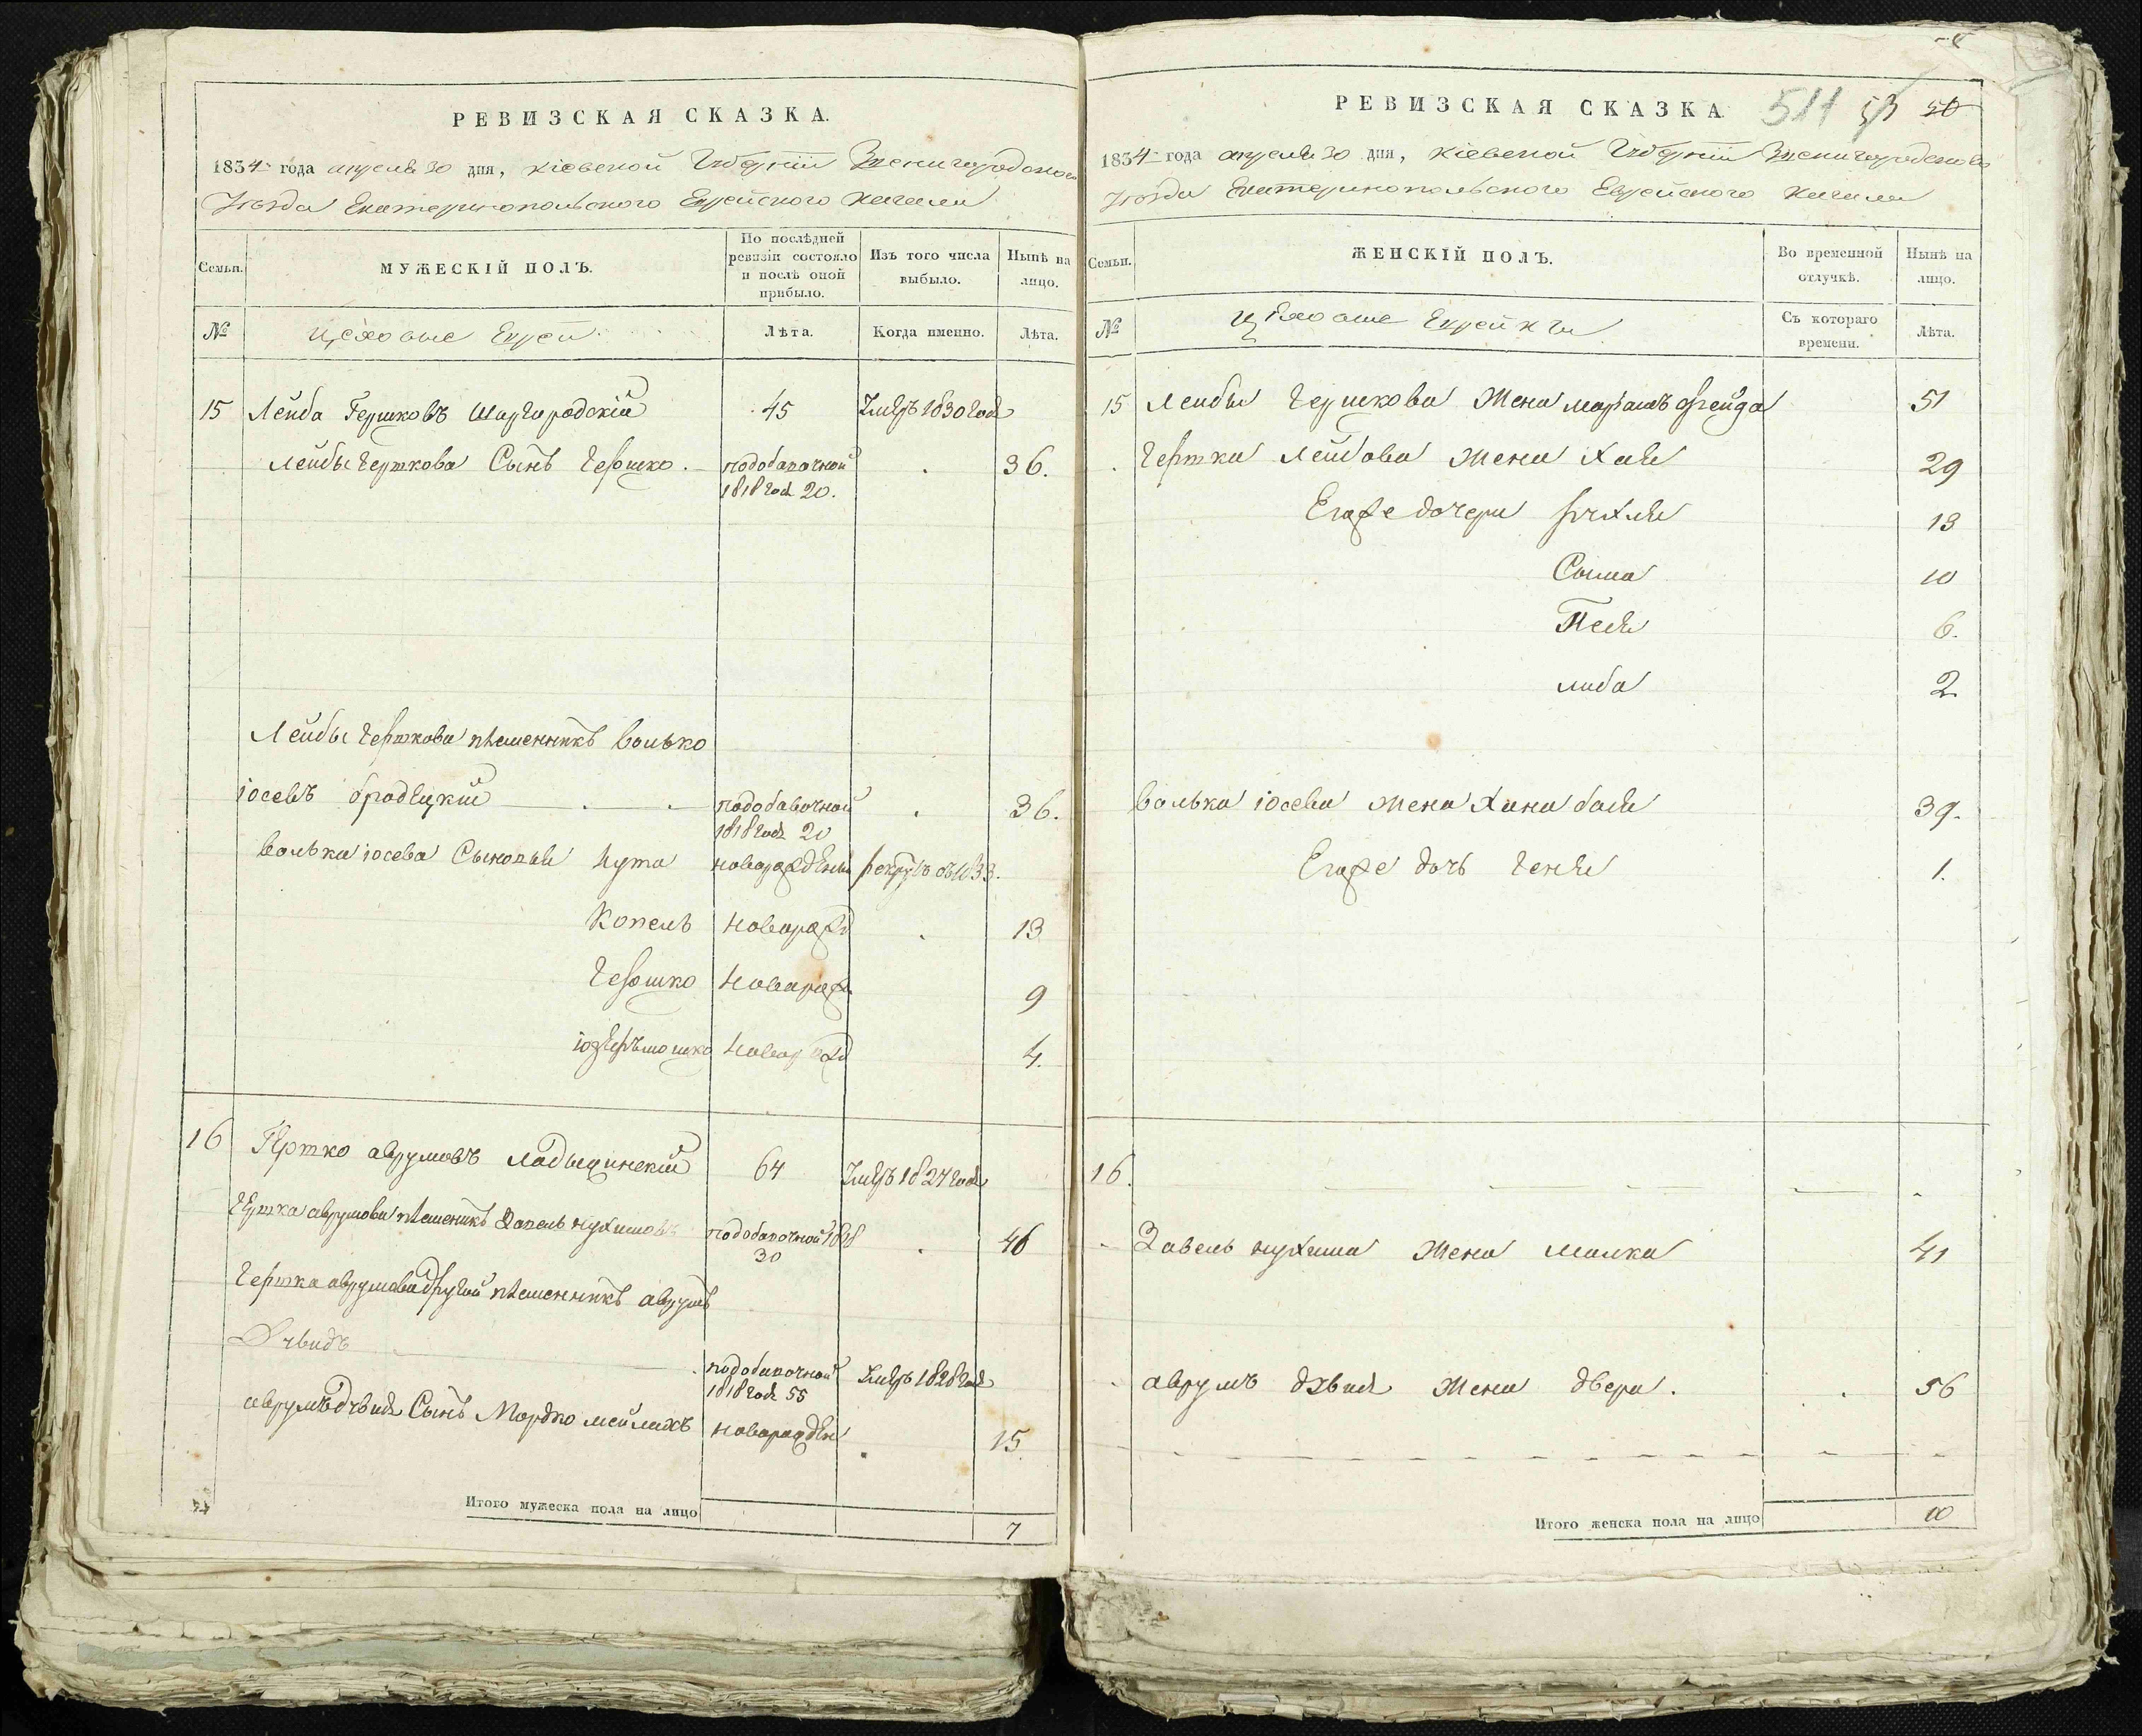 РЕВИЗСКАЯ СКАЗКА.
1834 года апреля 30 дня, Кіевской Губерніи Звенигородского
Уѣзда Екатеринопольского Еврейского Кагала
Семьи.
МУЖЕСКІЙ ПОЛЪ.
По послѣдней ревизіи состояло и послѣ оной прибыло.
Изъ того числа выбыло.
Нынѣ на лицо.
№
Цеховые Евреи
Лѣта.
Когда именно.
Лѣта.
15 Лейба Гершковъ Шаргородскій 45 Умеръ 1830 года
Лейбы Гершкова Сынъ Гершко. подобавочной 1818 года 20. 36.
Лейбы Гершкова племенникъ Волько
іосевъ бродецкій подобавочной 1818 года 20 36.
Волька іосева Сыновья Нута новорожденый рекрутъ съ 1833.
Копель новорожд 13
Гершко новорожд 9
новорожд 4.
16 Гершко аврумовъ ладыжинскій 64 Умеръ 1827 года
Гершка аврумова племеникъ нухимовъ подобавочной 1818 30 46
Гершка аврумова другой племенникъ аврумъ
подобавочной 1818 года 55 Умеръ 1828 года
Сынъ Мордко мейлахъ новорожден 15
Итого мужеска пола на лицо 7
РЕВИЗСКАЯ СКАЗКА
511 50
1834 года апреля 30 дня, Кіевской Губерніи Звенигородского
Уѣзда Екатеринопольского Еврейского Кагала
Семьи.
ЖЕНСКІЙ ПОЛЪ.
Во временной отлучкѣ.
Нынѣ на лицо.
№
Цеховые Еврейки
Съ котораго времени.
Лѣта.
15 Лейбы Гершкова Жена марьямъ фрейда 51
Гершка Лейбова жена Хая 29
Егоже дочери рухля 13
Сыма 10
Песя 6.
либа 2
Волька іосева жена Хана бася 39.
Егоже дочь Геня 1.
16.
Завель нухима Жена Малка 41
аврумъ Жена двера. 56
Итого женска пола на лицо 10